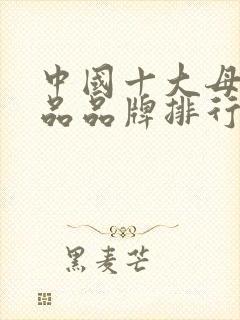 中國十大母
品品牌排行
黑麦芒